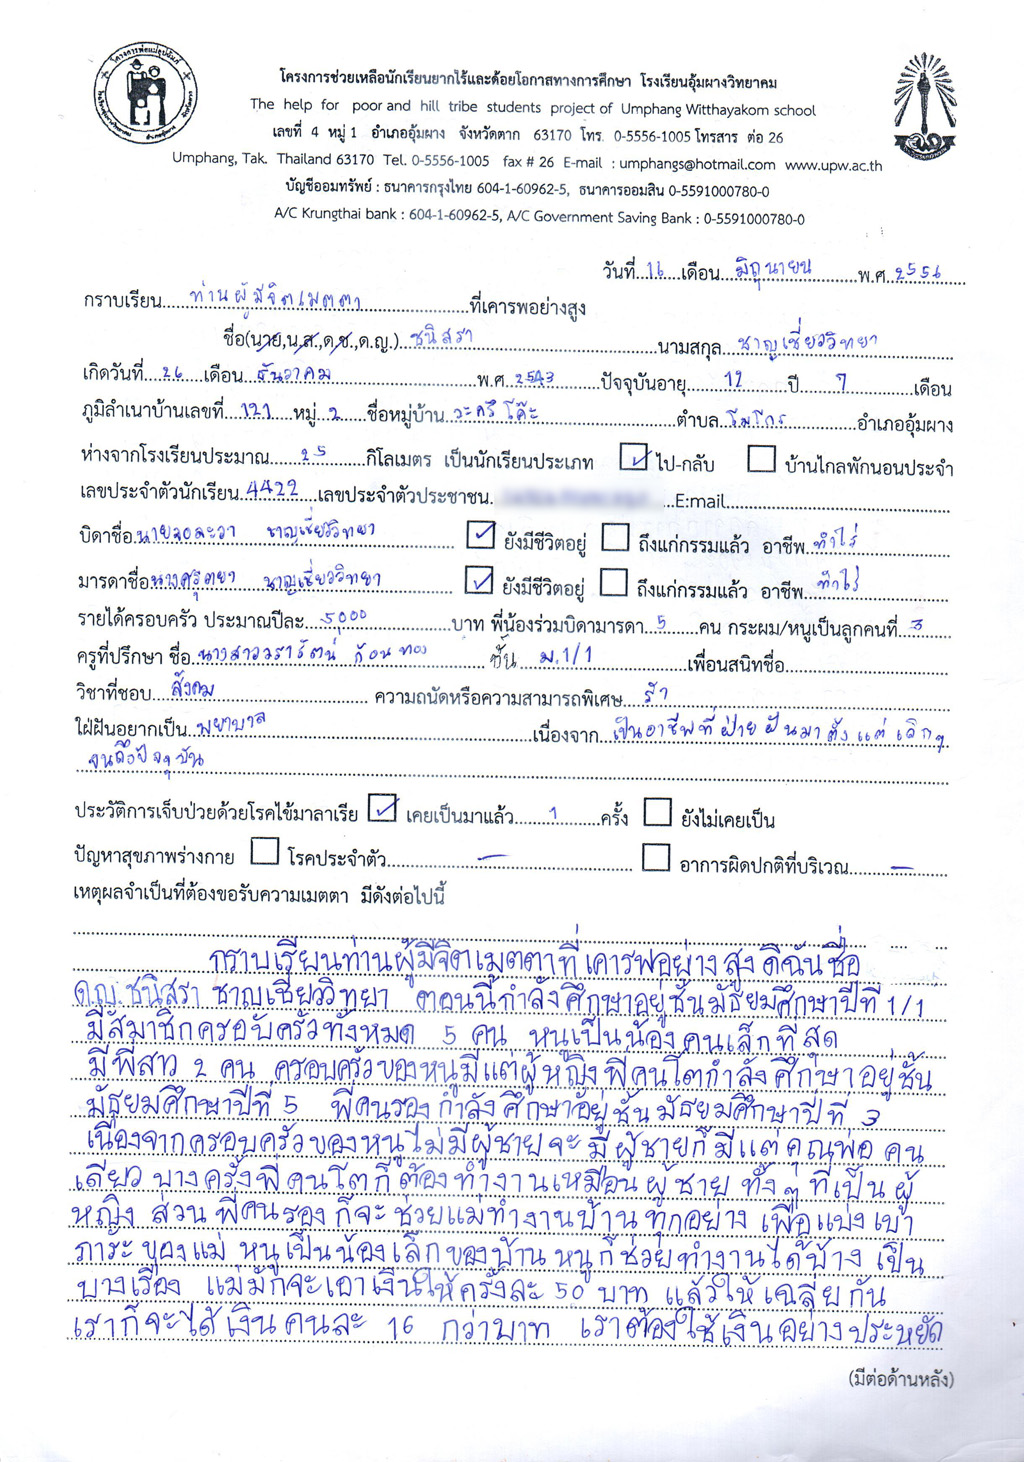 โครงการช่วยเหลือนักเรียนยากไร้และด้อยโอกาสทางการศึกษา โรงเรียนอุ้มผางวิทยาคม
The help for poor and hill tribe students project of Umphang Witthayakom school
เลขที่ 4 หมู่ 1 อำเภออุ้มผาง จังหวัดตาก 63170 โทร. 0-5556-1005 โทรสาร ต่อ 26
Umphang, Tak. Thailand 63170 Tel. 0-5556-1005 fax # 26 E-mail : umphangs@hotmail.com www.upw.ac.th
บัญชีออมทรัพย์ : ธนาคารกรุงไทย 604-1-60962-5, ธนาคารออมสิน 0-5591000780-0
A/C Krungthai bank : 604-1-60962-5, A/C Government Saving Bank : 0-5591000780-0
วันที่ 16 เดือน มิถุนายน พ.ศ. 2556
กราบเรียน ท่านผู้มีจิตเมตตา ที่เคารพอย่างสูง
ชื่อ(นาย,น.ส.,ด.ช.,ด.ญ.) ชนิสรา นามสกุล ชาญเชี่ยววิทยา
เกิดวันที่ 26 เดือน ธันวาคม พ.ศ. 2543 ปัจจุบันอายุ 12 ปี 7 เดือน
ภูมิลำเนาบ้านเลขที่ 121 หมู่ 2 ชื่อหมู่บ้าน ตำบล โมโกร อำเภออุ้มผาง
ห่างจากโรงเรียนประมาณ 25 กิโลเมตร เป็นนักเรียนประเภท ไป-กลับ บ้านไกลพักนอนประจำ
เลขประจำตัวนักเรียน 4422 เลขประจำตัวประชาชน E:mail
บิดาชื่อ ชาญเชี่ยววิทยา ยังมีชีวิตอยู่ ถึงแก่กรรมแล้ว อาชีพ ทำไร่
มารดาชื่อ ชาญเชี่ยววิทยา ยังมีชีวิตอยู่ ถึงแก่กรรมแล้ว อาชีพ ทำไร่
รายได้ครอบครัว ประมาณปีละ 5000 บาท พี่น้องร่วมบิดามารดา 5 คน กระผม/หนูเป็นลูกคนที่ 3
ครูที่ปรึกษา ชื่อ นางสาววรารัตน์ ก้อนทอง ชั้น ม.1/1 เพื่อนสนิทชื่อ
วิชาที่ชอบ สังคม ความถนัดหรือความสามารถพิเศษ รำ
ใฝ่ฝันอยากเป็น พยาบาล เนื่องจาก เป็นอาชีพที่ฝ่ายฝันมาตั้งแต่เด็กๆ
จนถึงปัจจุบัน
ประวัติการเจ็บป่วยด้วยโรคไข้มาลาเรีย เคยเป็นมาแล้ว 1 ครั้ง ยังไม่เคยเป็น
ปัญหาสุขภาพร่างกาย โรคประจำตัว - อาการผิดปกติที่บริเวณ -
เหตุผลจำเป็นที่ต้องขอรับความเมตตา มีดังต่อไปนี้
กราบเรียนท่านผู้มีจิตเมตตาที่เคารพอย่างสูง ดิฉันชื่อ
ด.ญ.ชนิสรา ชาญเชี่ยววิทยา ตอนนี้กำลังศึกษาอยู่ชั้นมัธยมศึกษาปีที่ 1/1
มีสมาชิกครอบครัวทั้งหมด 5 คน หนูเป็นน้องคนเล็กที่สุด
มีพี่สาว 2 คน ครอบครัวของหนูมีแต่ผู้หญิงพี่คนโตกำลังศึกษาอยู่ชั้น
มัธยมศึกษาปีที่ 5 พี่คนรองกำลังศึกษาอยู่ชั้นมัธยมศึกษาปีที่ 3
เนื่องจากครอบครัวของหนูไม่มีผู้ชายจะมีผู้ชายก็มีแต่คุณพ่อคน
เดียว บางครั้งพี่คนโตก็ต้องทำงานเหมือนผู้ชาย ทั้งๆที่เป็นผู้
หญิง ส่วนพี่คนรองก็จะช่วยแม่ทำงานบ้านทุกอย่าง เพื่อแบ่งเบา
ภาระของแม่ หนูเป็นน้องเล็กของบ้านหนูก็ช่วยทำงานได้บ้าง เป็น
บางเรื่อง แม่มักจะเอาเงินให้ครั้งละ 50 บาท แล้วให้เฉลี่ยกัน
เราก็จะได้เงินคนละ 16 กว่าบาท เราต้องใช้เงินอย่างประหยัด
(มีต่อด้านหลัง)